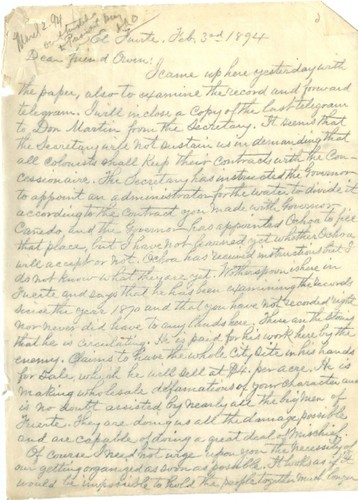 March 2. 94
El Fuerte. Feb. 3rd 1894
Dear friend Owen:
I came up here yesterday with
the paper, also to examine the record and forward
telegram. I will inclose a copy of the last telegram
to Don Martin from the Secretary. It seems that
the Secretary will not sustain us in demanding that
all Colonists shall keep their Contracts with the Con-
cessionaire. The Secretary has instructed the Governor
to appoint an administrator for the water to divide it
according to the contract you made with Governor
Cañedo and the Governor has appointed Ochoa to fill
that place, but I have not learned yet whether Ochoa
will accept or not. Ochoa has received instructions that I
do not know what they are yet. Witherspoon is here in
Fuerte and says that he has been examining the records
since the year 1870 and that you have not recorded rights
nor never did have to any lands here. Then on the story
that he is circulating. He is paid for his work here by the
enemy. Claims to have the whole City Site in his hands
for sale, which he will sell at $4. per acre. He is
making wholesale defamations of your character and
is no doubt assisted by nearly all the big men of
Fuerte. They are doing us all the damage possible
and are capable of doing a great deal of mischief.
Of course I need not urge upon you the necessity of
our getting organized as soon as possible. It looks as if it
would be impossible to hold the people together much longer